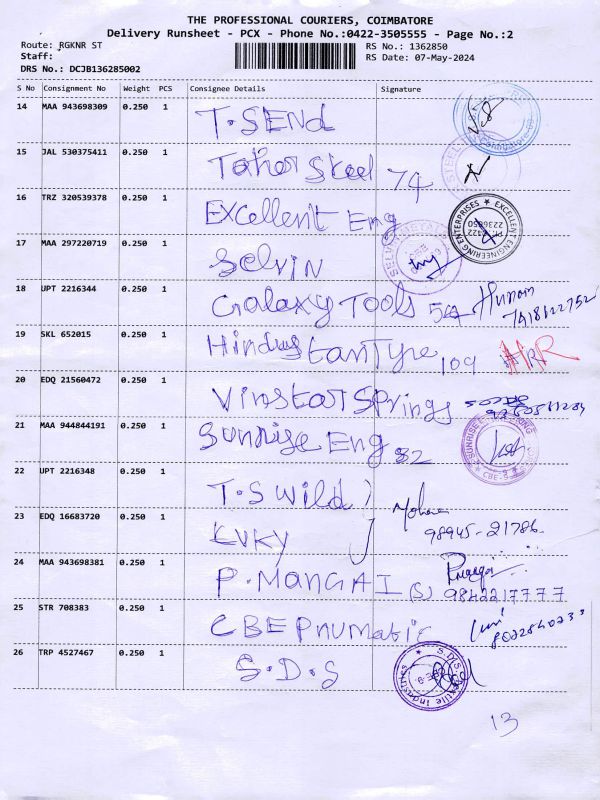 THE PROFESSIONAL COURIERS, COIMBATORE
Delivery Runsheet - PCX - Phone No.:0422-3505555 - Page No.:2
Route: RGKNR ST
RS No.: 1362850
Staff:
RS Date: 07-May-2024
DRS No.: DCJB136285002
S No Consignment No Weight PCS Consignee Details Signature
14 MAA 943698309 0.250 1 T.SENd
15 JAL 530375411 0.250 1 Taher Steel 74
16 TRZ 320539378 0.250 1 EXCellent Eng
EXCELLENT ENGINEERING ENTERPRISES
PH: 0422
2236850
17 MAA 297220719 0.250 1 Selvin
18 UPT 2216344 0.250 1 Galaxy Tools
7418122752
19 SKL 652015 0.250 1 Hindustan Tyre 109
20 EDQ 21560472 0.250 1 Vinstar Springs
21 MAA 944844191 0.250 1 Sunrise Eng 82
22 UPT 2216348 0.250 1 T.S Wild
23 EDQ 16683720 0.250 1 LVKY
98945-21786
24 MAA 943698381 0.250 1 P.MANGAI (S) 9842217777
25 STR 708383 0.250 1 CBE Pnumatic
26 TRP 4527467 0.250 1 S.D.S
S.D.S. Textile Industries
13